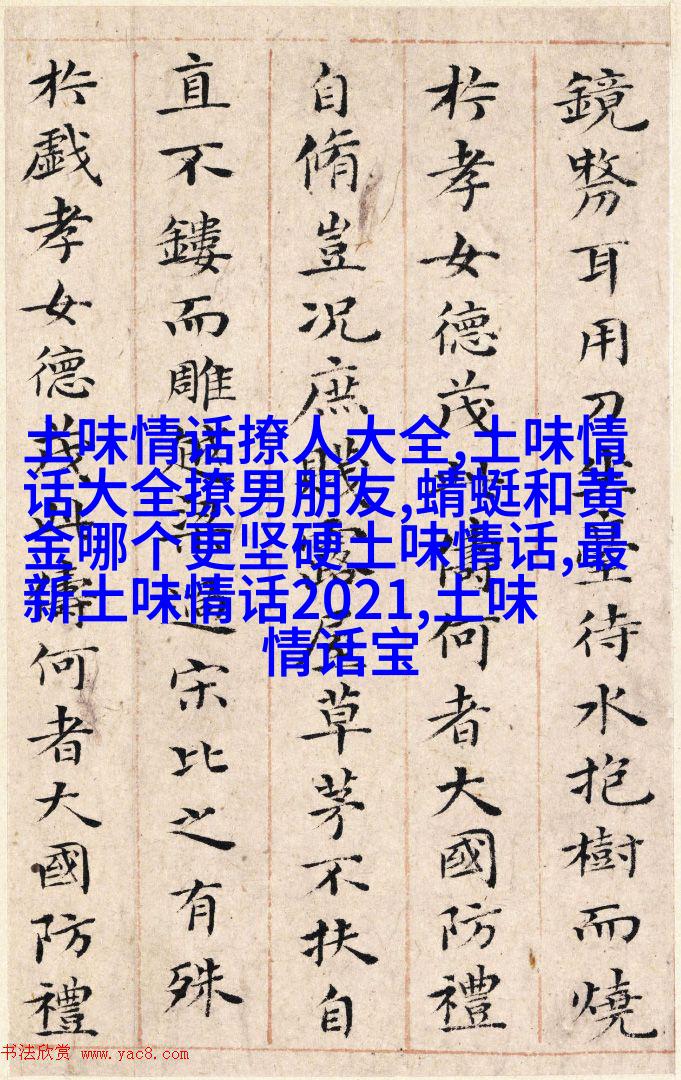 鏡剺耳用刀坐臺待水抱樹而燒
扵孝女德茂此儔何者大國防禮
自脩豈况庶賤露屋草茅不扶自
直不鏤而雕越梁過宋比之有殊
扵戯孝女德茂此儔何者大國防禮
土味情话撩人大全,土味情
话大全撩男朋友,蜻蜓和黄
金哪个更坚硬土味情话,最
新土味情话2021,土味
情话宝
书法欣赏 www.yac8.com